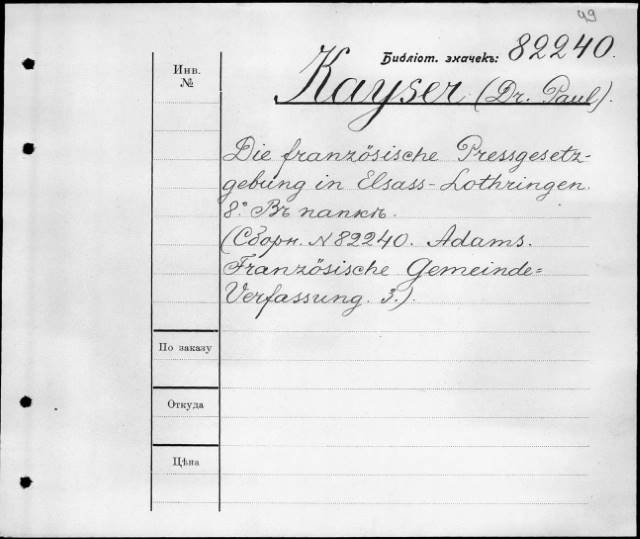 99
Библіот. значекъ: 82240.
Инв.
№
Kayser (Dr. Paul).
Die französische Pressgesetz-
gebung in Elsass-Lothringen.
8° Въ папкѣ.
(Сборн. N 82240. Adams.
Französische Gemeinde=
Verfassung. 3.).
По заказу
Откуда
Цѣна